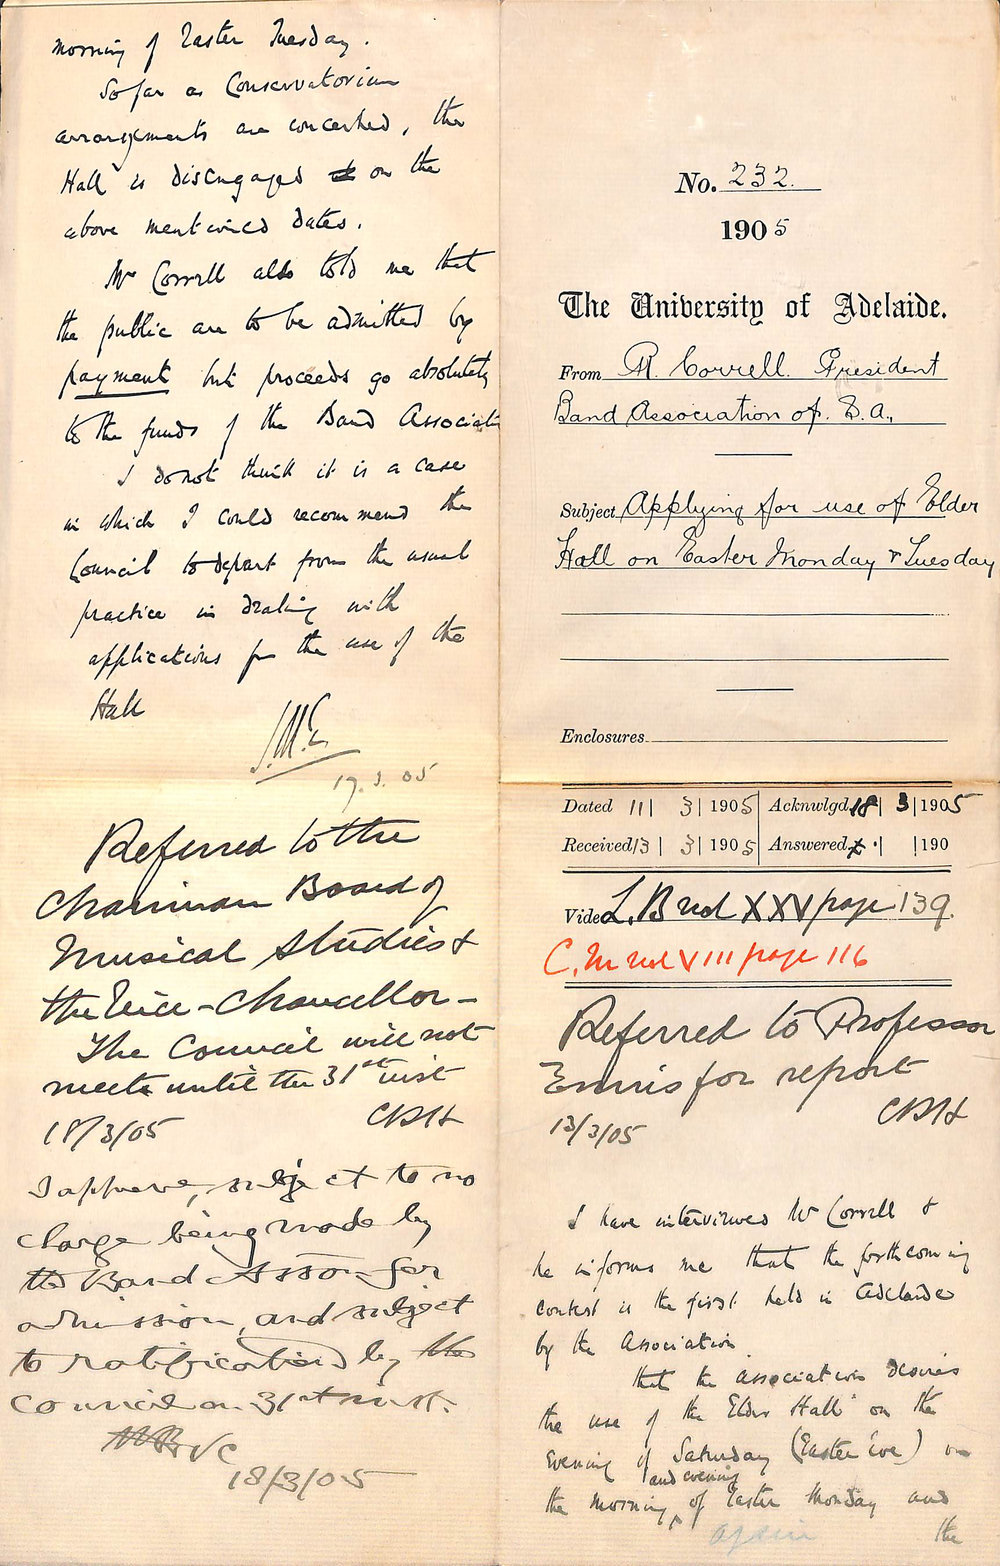 No. 232.
1905
The University of Adelaide.
From R. Correll. President
Band Association of S.A.,
Subject Applying for use of Elder
Hall on Easter Monday & Tuesday
Enclosures
Dated 11 | 3 | 1905 Acknwlgd 18 | 3 | 1905
Received 13 | 3 | 1905 Answered x . | | 190
Vide L. B vol XXV page 139.
C. M vol VIII page 116
Referred to Professor
Ennis for report
13/3/05 CRH
I have interviewed Mr Correll &
he informs me that the forthcoming
contest is the first held in Adelaide
by the Association
that the association desires
the use of the Elder Hall on the
evening of Saturday (Easter Eve) on
the morning and evening of Easter Monday and
again the
morning of Easter Tuesday.
So far as Conservatorium
arrangements are concerned, the
Hall is disengaged on the
above mentioned dates.
Mr Correll also told me that
the public are to be admitted by
payment but proceeds go absolutely
to the funds of the Band Associati
I do not think it is a case
in which I could recommend the
Council to depart from the usual
practice in dealing with
applications for the use of the
Hall
J.M.E.
17.3.05
Referred to the
Chairman Board of
Musical Studies &
the Vice-Chancellor -
The Council will not
meet until the 31st inst
18/3/05 CRH
I approve, subject to no
charge being made by
the Band Asson for
admission, and subject
to ratification by the
Council on 31st inst.
VC
18/3/05